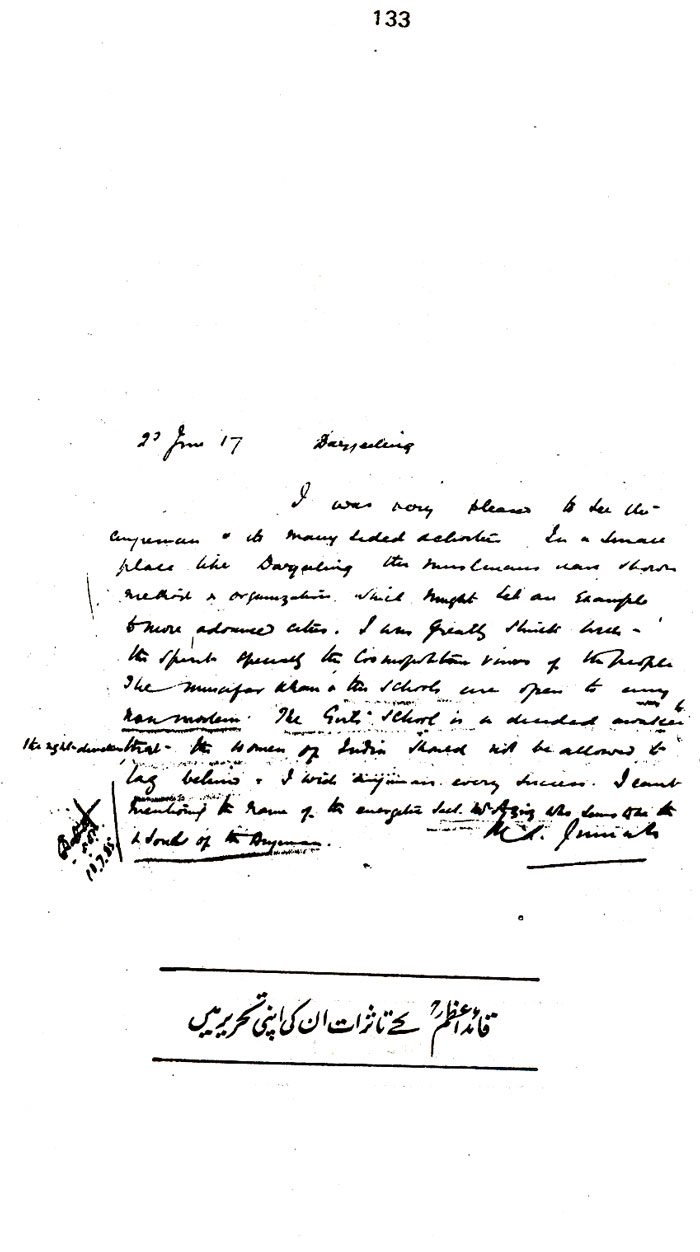 133
June 17 Darjeeling
I was very pleased to see the
anjuman & its many sided activities In a small
place like Darjeeling the musulmans have shown
method & organization which might set an example
to more advanced cities. I was greatly struck with
the spirit specially the Cosmopolitan views of the people
The musafar khana & the schools are open to every
non moslem. The Girls' School is a decided
that the women of India should not be allowed to
lag behind. I wish anjuman every success. I can't
mentioning the name of the energetic Sect. Mr Aziz who seems to be the
soul of the Anjuman.
M.A. Jinnah
قائد اعظمؒ کے تاثرات ان کی اپنی تحریر میں